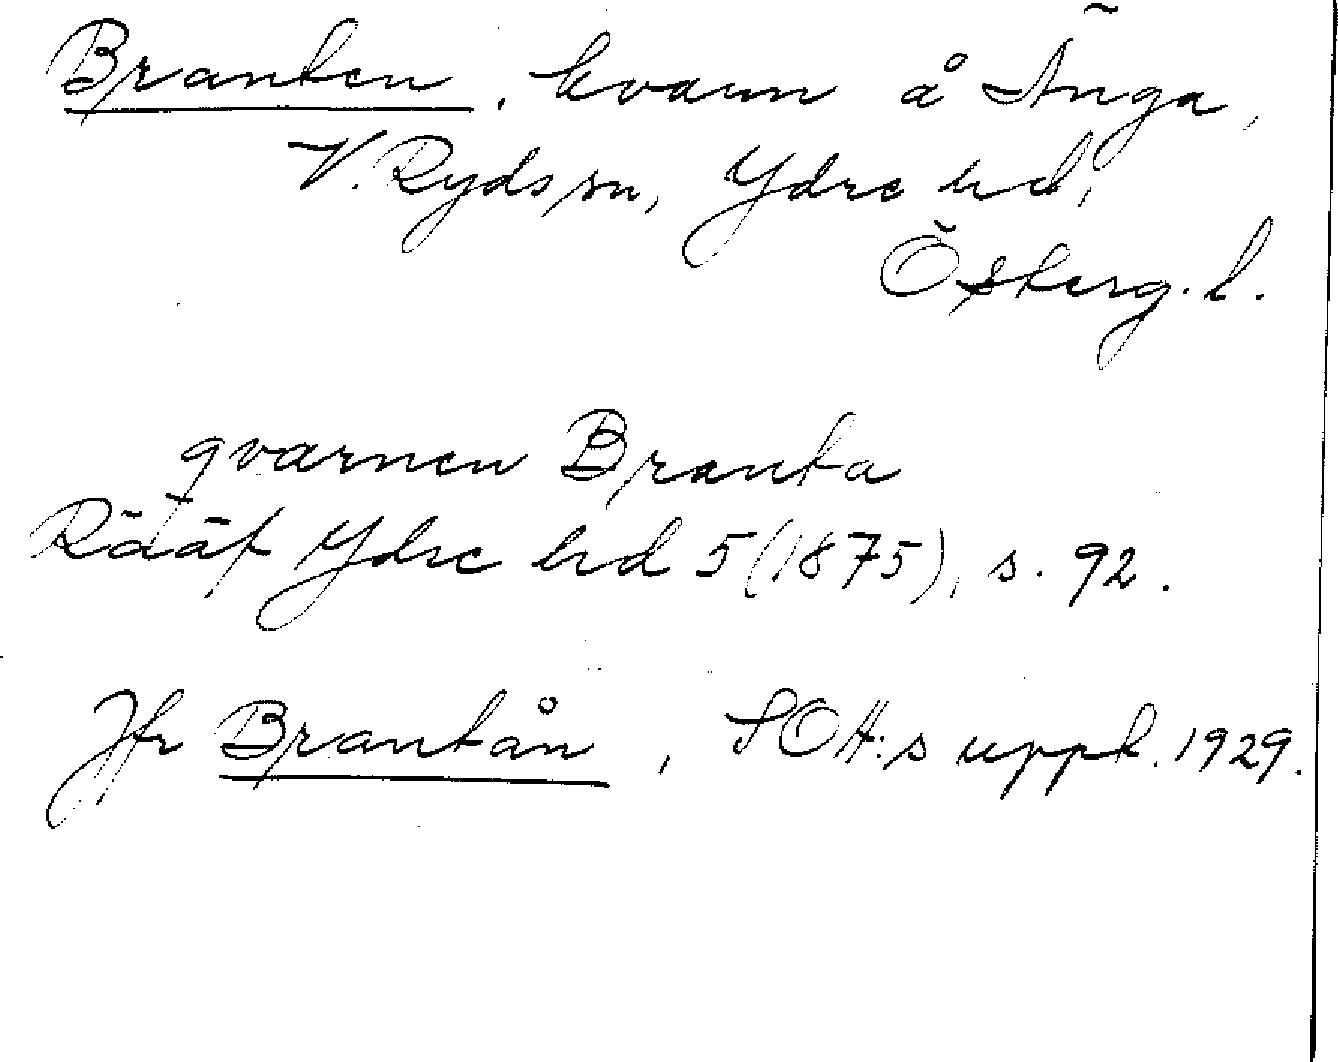 Branten, kvarn å Änga,
V. Ryds sn, Ydre hd,
Österg. l.
qvarnen Branta
Rääf Ydre hd 5 (1875), s. 92.
Jfr Brantån, SOH:s uppt. 1929.